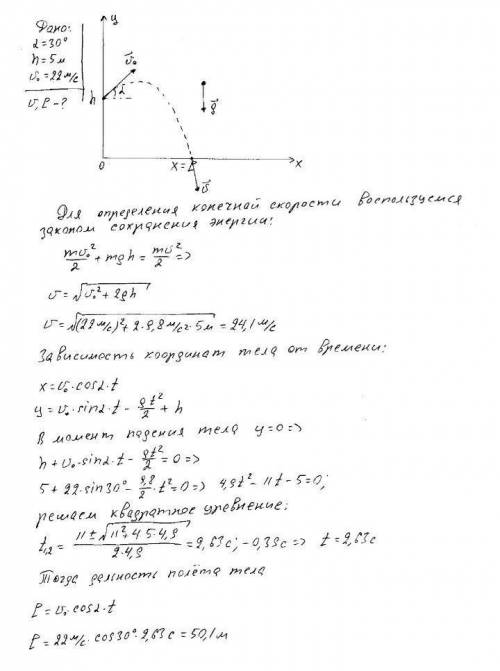 Дано:
α=30°
h=5м
v₀=22м/с
v, ℓ-?
y
v⃗₀
α
h
g⃗
0
x=ℓ
x
v⃗
Для определения конечной скорости воспользуемся
законом сохранения энергии:
mv₀²/2 + mgh = mv²/2 =>
v=√(v₀²+2gh)
v=√((22м/с)²+2·9,8м/с²·5м) = 24,1м/с
Зависимость координат тела от времени:
x=v₀·cosα·t
y=v₀·sinα·t - gt²/2 + h
В момент падения тела y=0 =>
h+v₀·sinα·t - gt²/2 = 0 =>
5+22·sin30° - 9,8/2·t²=0 => 4,9t² - 11t - 5=0;
решаем квадратное уравнение:
t₁,₂ = (11±√(11²+4·5·4,9))/(2·4,9) = 2,63с; -0,39с => t=2,63с
Тогда дальность полёта тела
ℓ=v₀·cosα·t
ℓ=22м/с·cos30°·2,63с=50,1м